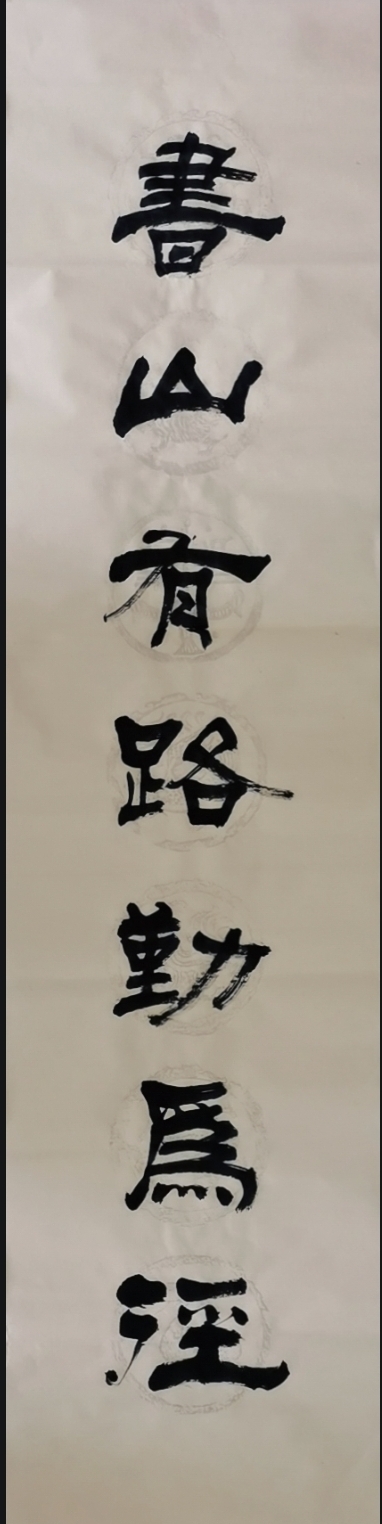 書山有路勤爲徑